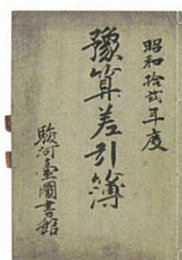 昭和拾弐年度
豫算差引簿
駿河臺圖書館